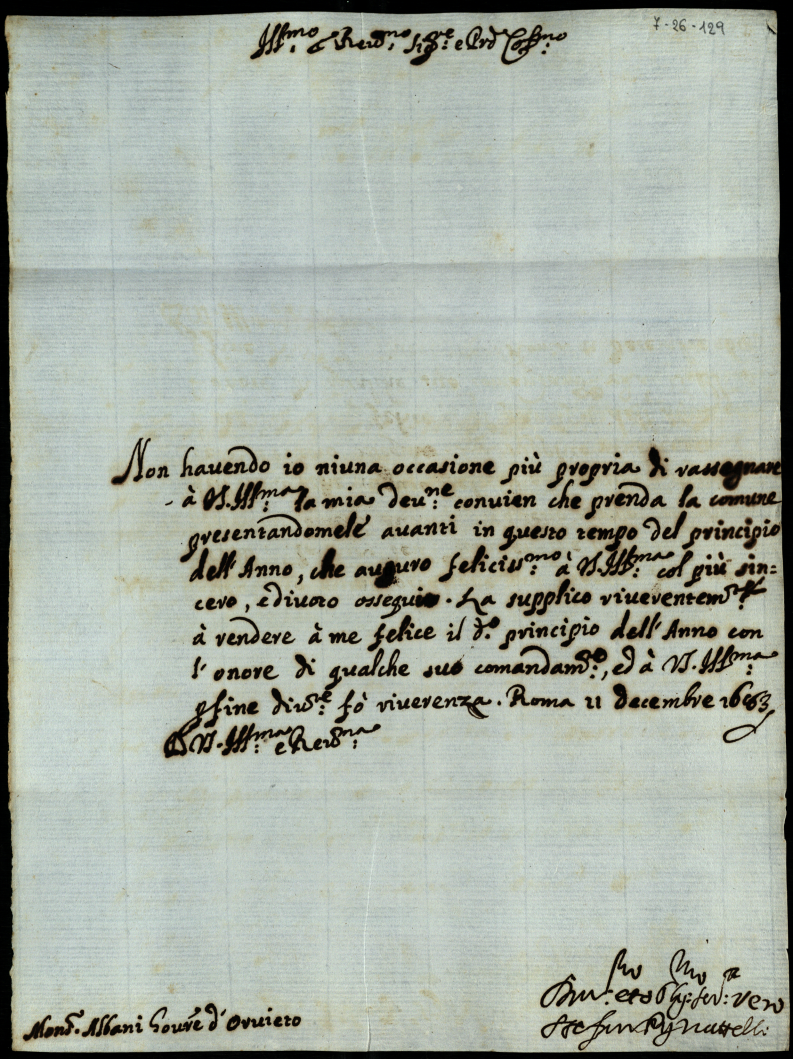 7-26-129
Ill.mo e Rev.mo Sig.re e Prõ Col.mo
Non havendo io niuna occasione più propria di rassegnare
à V.S. Ill.ma la mia deu.ne convien che prenda la comune
presentandomele avanti in questo tempo del principio
dell'Anno, che auguro feliciss.mo à V.S. Ill.ma col più sin=
cero, e divoto ossequio. La supplico riverentem.te
à rendere à me felice il d.o principio dell'Anno con
l'onore di qualche suo comandam.to, ed à V.S. Ill.ma
p fine div.te fò riverenza. Roma 11 decembre 1663
D V.S. Ill.ma e Rev.ma
Mons.r Albani Gov.re d'Orvieto
Dev.mo et Obblig.mo ser.re vero
Stefano Pignattelli